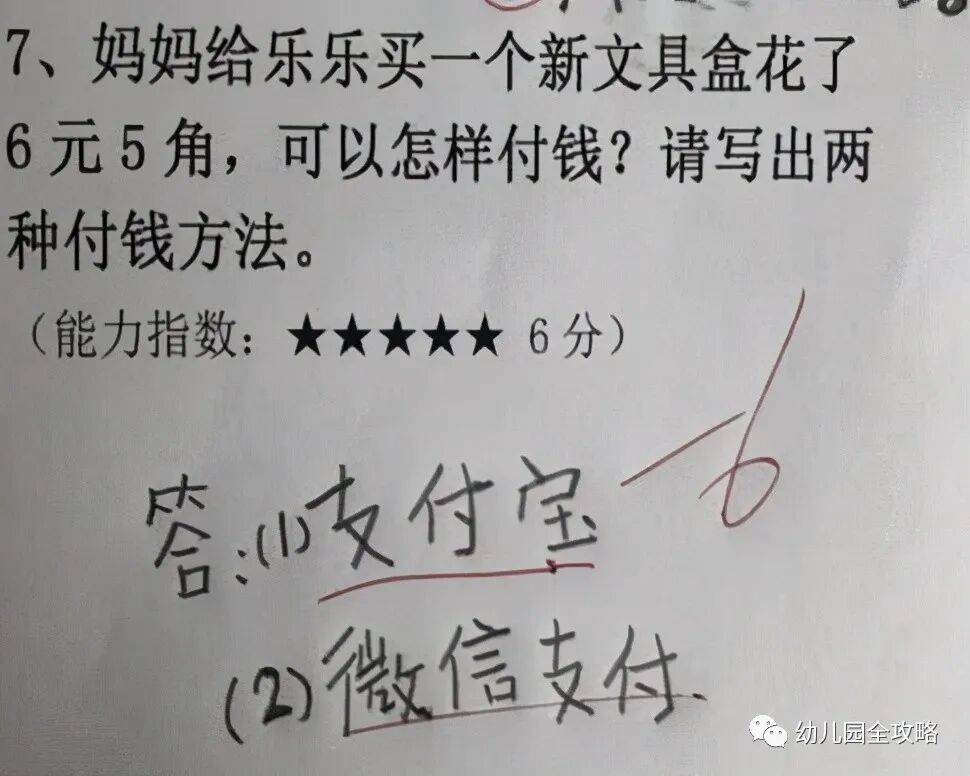 7、妈妈给乐乐买一个新文具盒花了
6元5角，可以怎样付钱？请写出两
种付钱方法。
（能力指数：★★★★★ 6分）
-6
答：(1)支付宝
(2)微信支付.
幼儿园全攻略